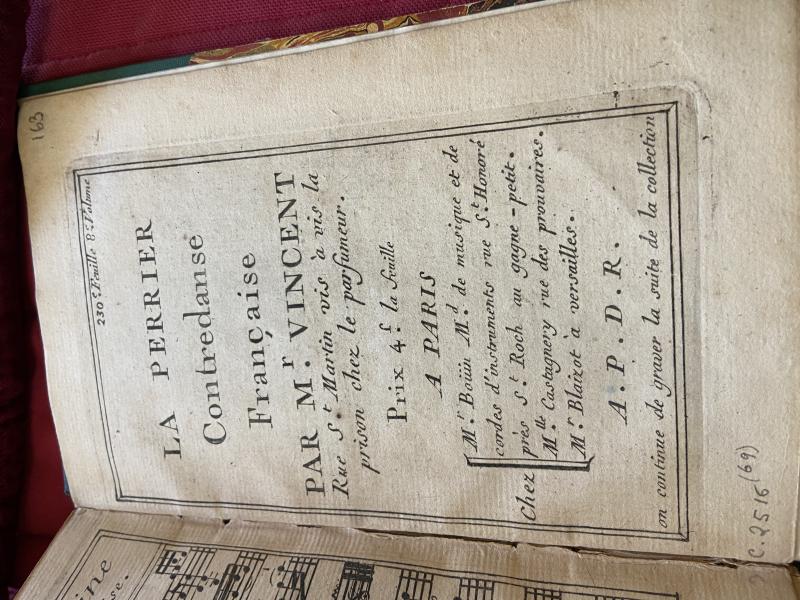 163
230.e Feuille 8.e Volume
LA PERRIER
Contredanse
Française
PAR M.r VINCENT
Rue S.t Martin vis à vis la
prison chez le parfumeur.
Prix 4.f la feuille
A PARIS
Chez
M.r Boüin M.d de musique et de
cordes d'instruments rue S.t Honoré
prés S.t Roch au gagne-petit.
M.lle Castagnery rue des prouvaires.
M.r Blaizot à versailles.
A.P.D.R.
on continue de graver la suite de la collection
C.2516 (69)
ine
se.